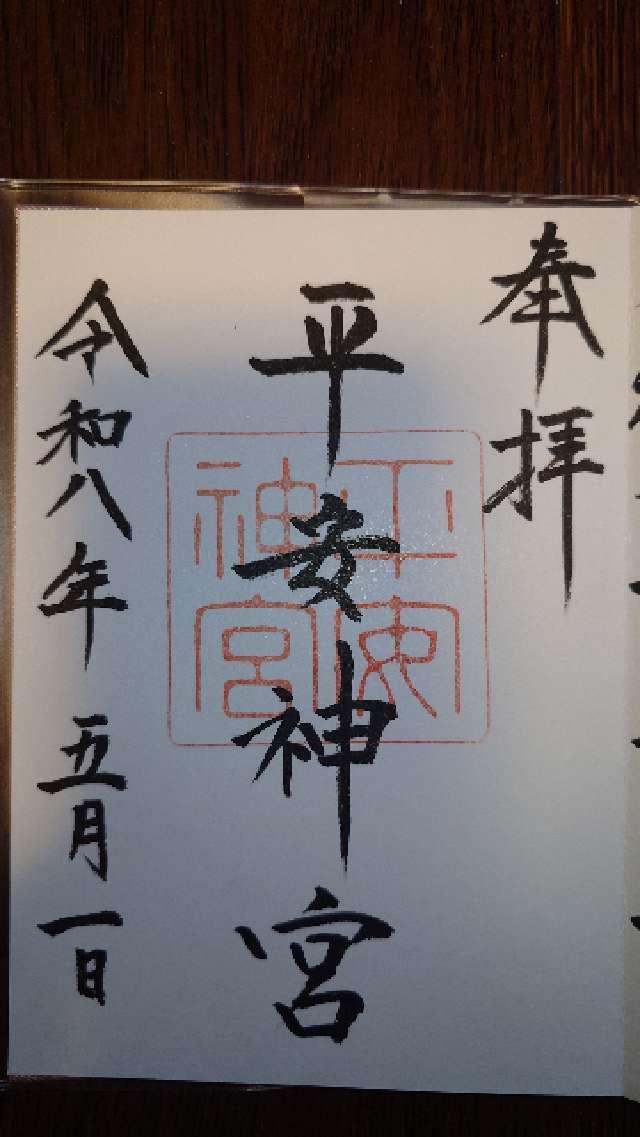 奉拝
平安神宮
平安神宮
令和八年 五月一日